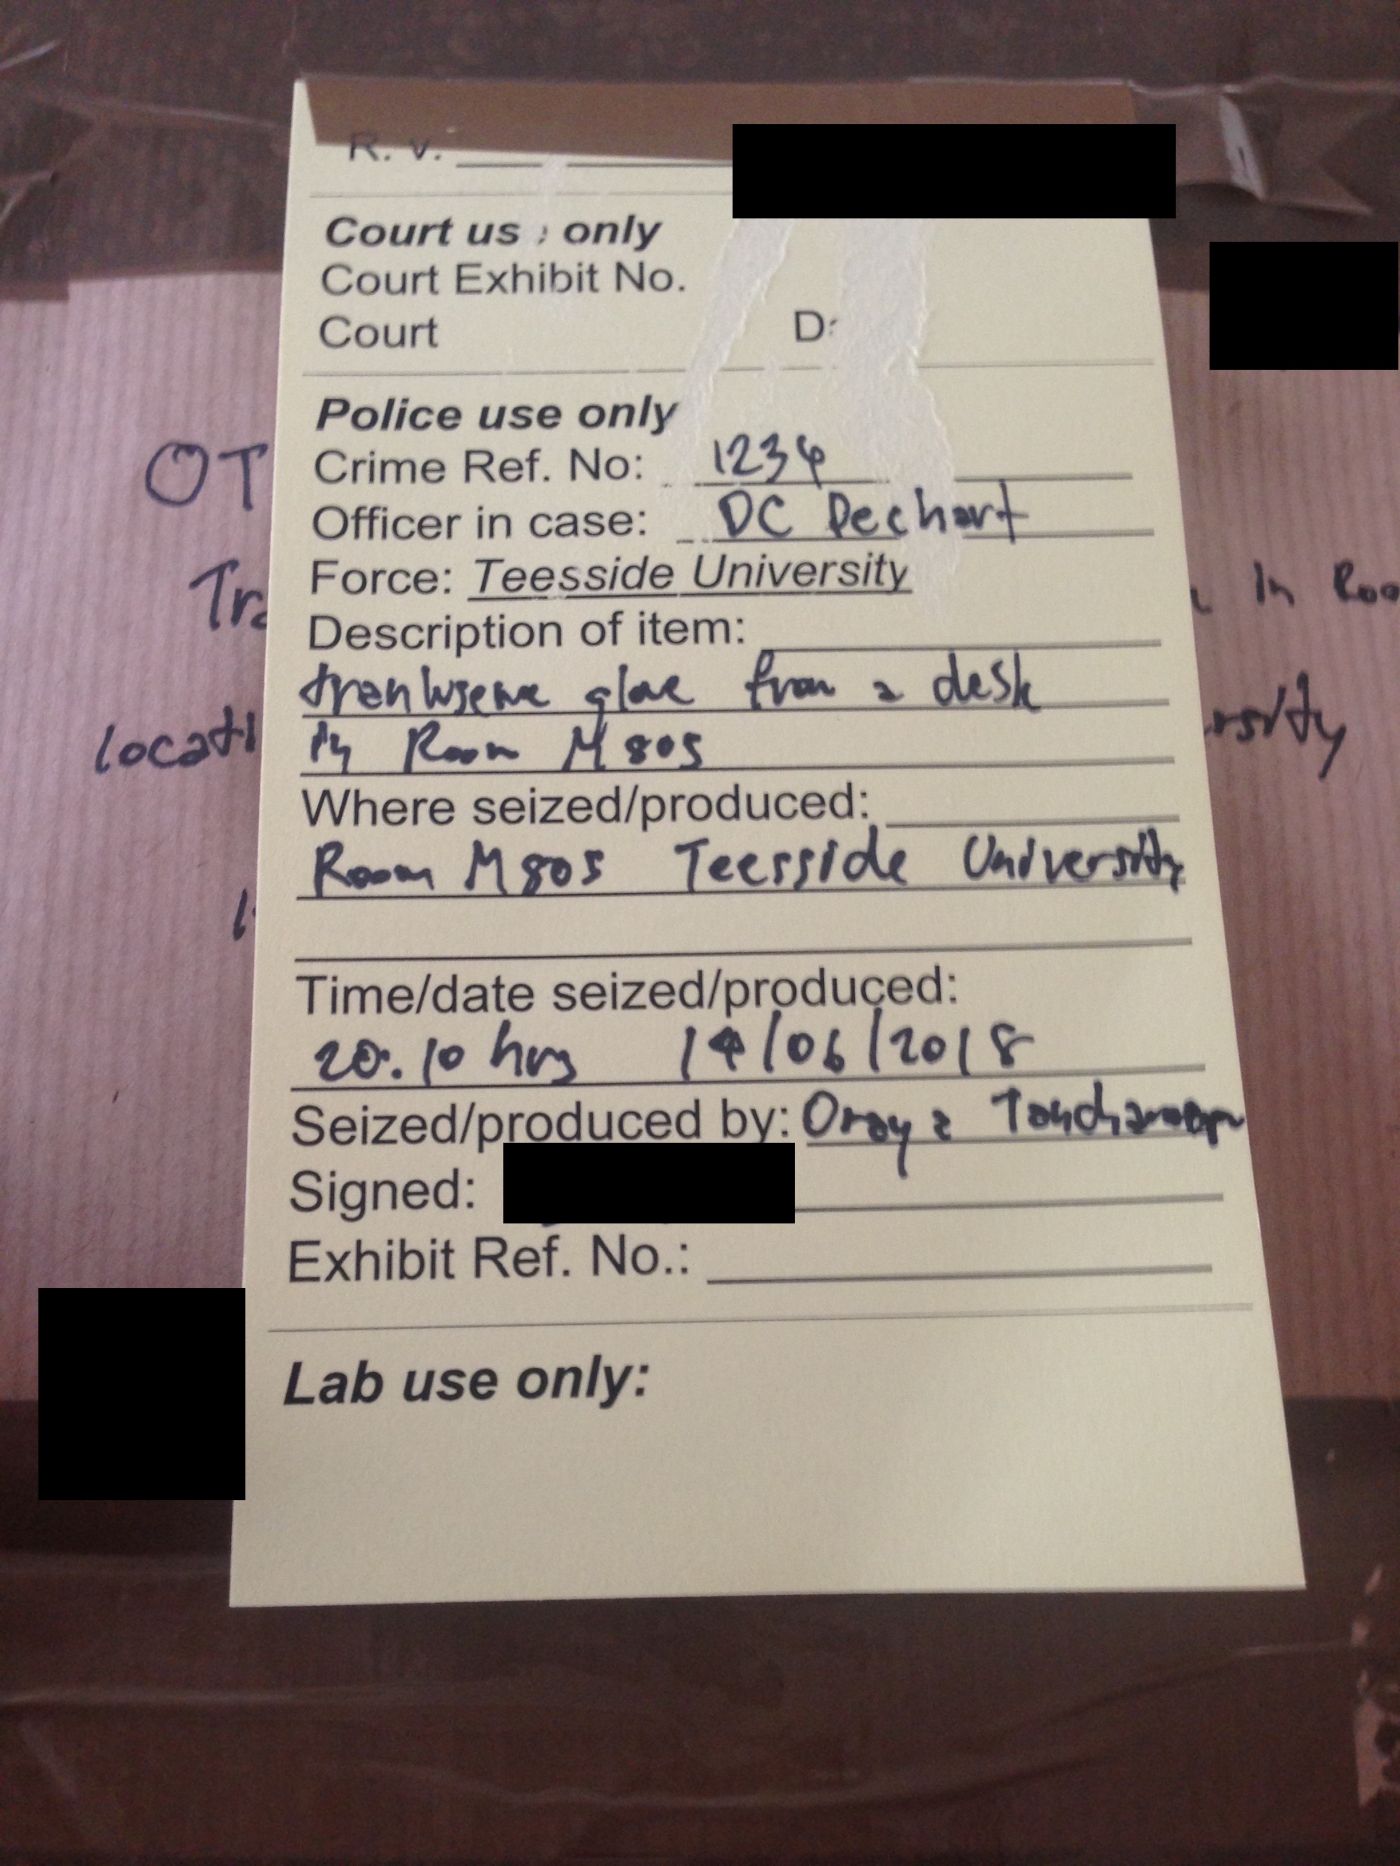 R. v.
Court us only
Court Exhibit No.
Court D
Police use only
Crime Ref. No: 1234
Officer in case: DC Dechart
Force: Teesside University
Description of item:
glove from a desk
in Room M805
Where seized/produced:
Room M805 Teesside University
Time/date seized/produced:
20.10 hrs 14/06/2018
Seized/produced by: Oraya
Signed:
Exhibit Ref. No.:
Lab use only:
OT
Tra In Roo
locati rsity